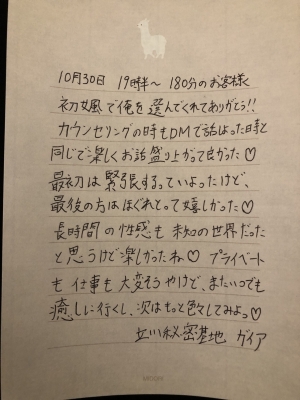 10月30日 19時半〜 180分のお客様
初女風で俺を選んでくれてありがとう!!
カウンセリングの時もDMで話しよった時と
同じで楽しくお話盛り上がって良かった♡
最初は緊張するっていよったけど、
最後の方はほぐれとって嬉しかった♡
長時間の性感も未知の世界だった
と思うけど楽しかったね♡ プライベート
も仕事も大変そうやけど、またいつでも
癒しに行くし、次はもっと色々してみよっ♡
立川秘密基地 ゲイア